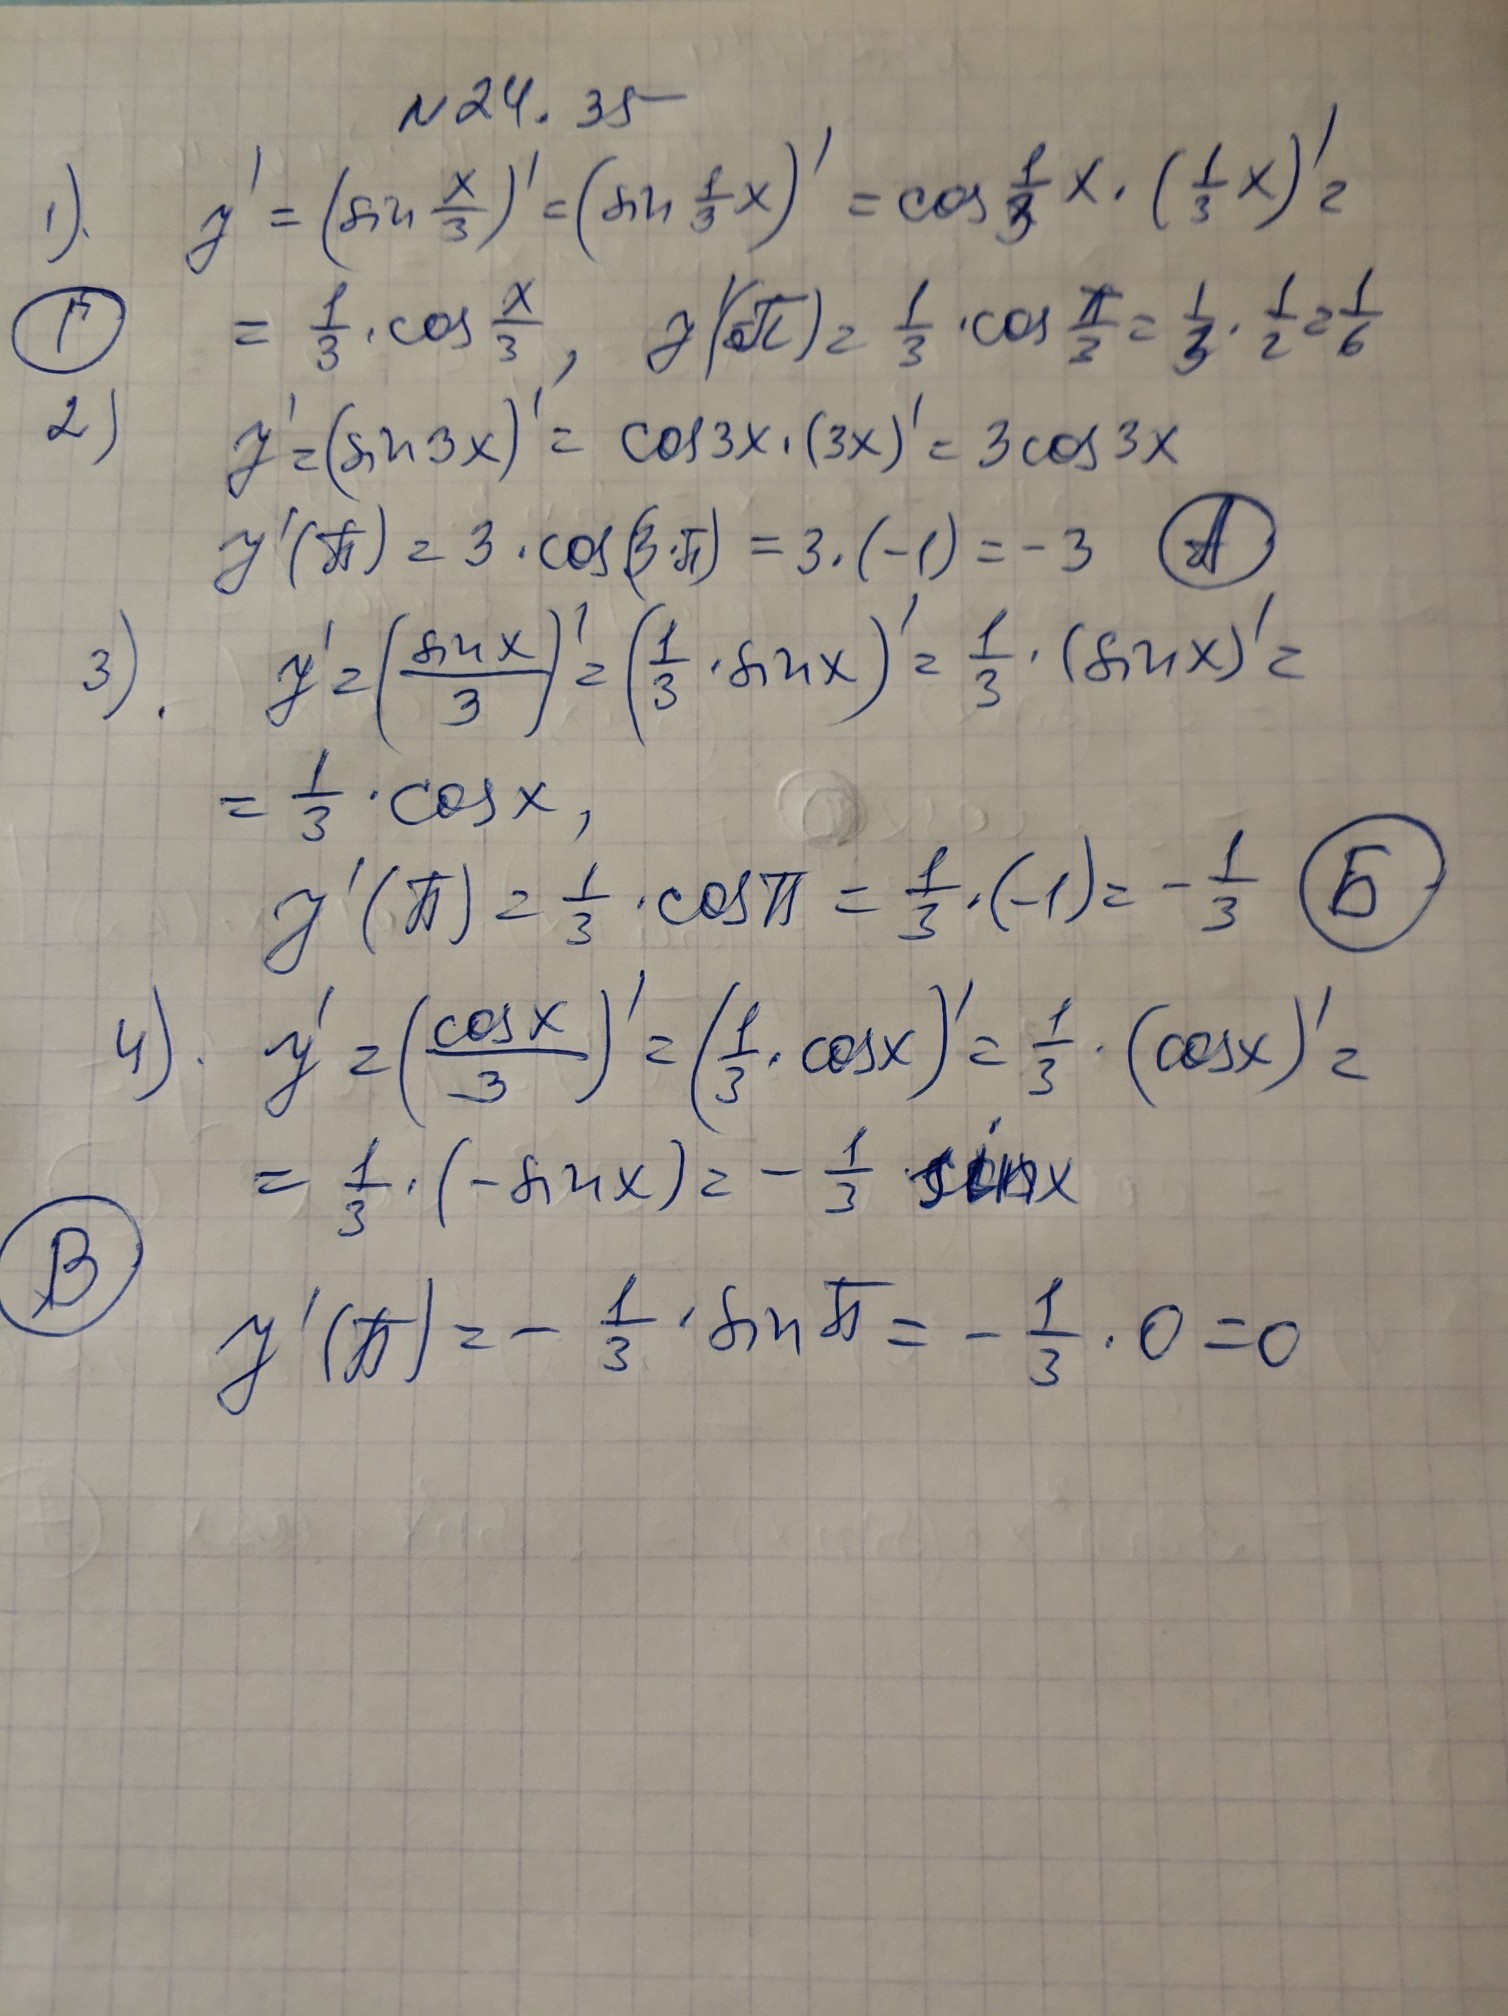 № 24.35
1). y' = (sin x/3)' = (sin 1/3 x)' = cos 1/3 x · (1/3 x)' =
Г = 1/3 · cos x/3, y'(π) = 1/3 · cos π/3 = 1/3 · 1/2 = 1/6
2) y' = (sin 3x)' = cos 3x · (3x)' = 3 cos 3x
y'(π) = 3 · cos(3·π) = 3·(-1) = -3 А
3). y' = (sin x/3)' = (1/3 · sin x)' = 1/3 · (sin x)' =
= 1/3 · cos x,
y'(π) = 1/3 · cos π = 1/3 · (-1) = - 1/3 Б
4). y' = (cos x/3)' = (1/3 · cos x)' = 1/3 · (cos x)' =
= 1/3 · (- sin x) = - 1/3 sin x
В
y'(π) = - 1/3 · sin π = - 1/3 · 0 = 0